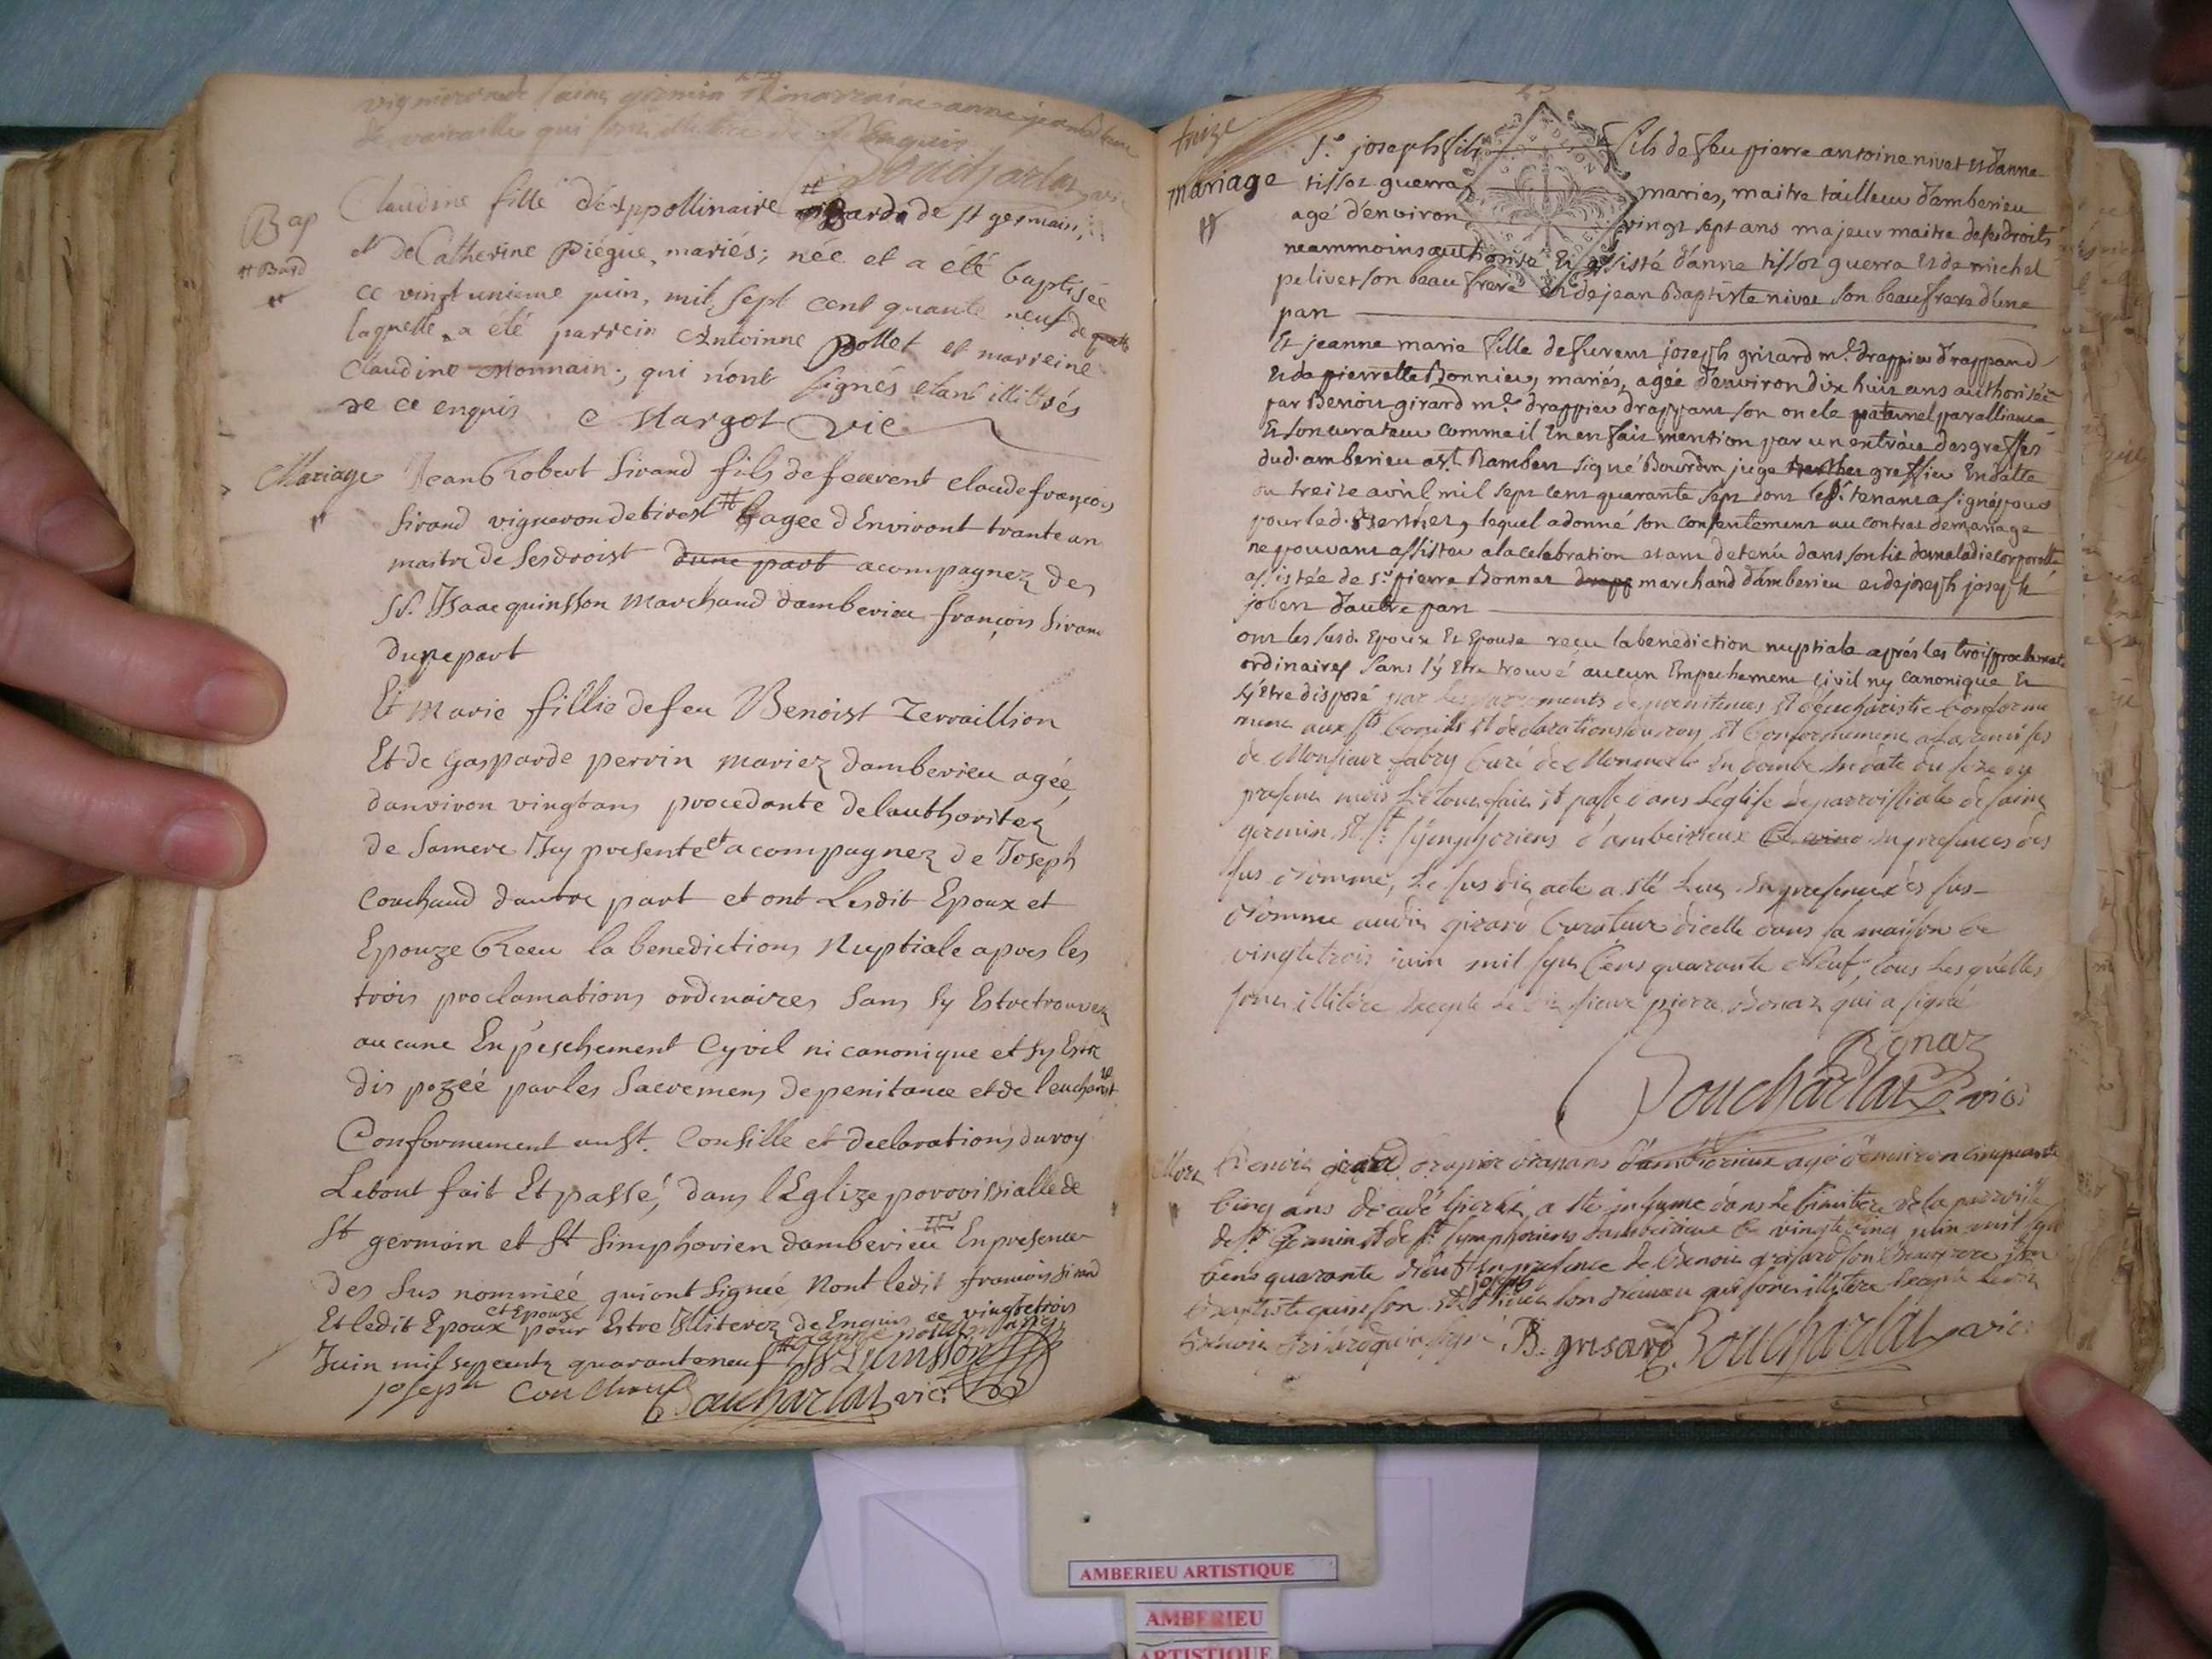 vigneron de saint germin et marraine anne
de vareille qui sont illitere de ce enquis
Boucharlat vic
Bap
# Bard
Claudine fille d'Appollinaire # Bardo de st germain,
et de Catherine Piégue, mariés; née et a été baptisée
ce vingt unieme juin, mil sept cent quarante neuf de
laquelle a été parrein Antoinne Pollet et marreine
Claudine Monnain; qui n'ont signés etant illitérés
de ce enquis C Margot vic
Mariage
Jean Robert Sirand fils defeuvent claude françois
Sirand vigneron de tirest # agee d Environt trante an
maitre de Sesdroist dune part acompagnez des
Sr. Isaac quinsson Marchand damberieu françois Siran
dunepart
Et Marie fillie defeu Benoist Terraillion
Et de Gasparde pervin mariez damberieu agée
danviron vingt ans procedante delauthoritez
de Samere Isy presente et acompagnez de Joseph
Couchaud dautre part et ont Lesdit Epoux et
Epouze Receu la benediction Nuptiale apres les
trois proclamations ordinaires sans sy Estre trouvez
aucune Enpeschement Cyvil ni canonique et sy Estre
dis pozéé par les Sacremens de penitance et de leucharist
Conformement au St. Consille et declarations du roy
Letout fait Et passé, dans lEglize parroissialle de
St germain et St Simphorien damberieu En presence
des Sus nommiéé qui ont Signé Nont ledit françois Sirand
Et ledit Epoux et Epouze pour Estre Illiterez de Enquis ce vingtetrois
Juin mil sepcents quaranteneuf Is Quinsson
joseph Couchaud Boucharlat vic:
treize
mariage
Sr. joseph fils de feu pierre antoine nivet et d'anne
tissot guerra mariés, maitre tailleur d'amberieu
agé d'environ vingt sept ans majeur maitre de ses droits
neammoins authorise et assisté d'anne tissot guerra et de michel
pelivet son beau frere et de jean Baptiste nivet son beaufrere d'une
part
Et jeanne marie fille defuvent joseph grisard me. drappier drappand
et de pierrette Bonnier, mariés, agée d'environ dix huit ans authorisée
par Benoit girard me drappier drappant son oncle paternel par alliance
Et son curateur comme il en en fait mention par un extrait des greffes
dud. amberieu a st. Rambert signé Bourdin juge greffier en datte
du treize avril mil sept cent quarante sept dont led. tenant a signé pour
pour led. lequel a donné son consentement au contrat de mariage
ne pouvant assister a la celebration etant detenu dans son lit de maladie corporelle
assistée de sr. pierre Bonnat marchand d'amberieu et de joseph joseph
jobert d'autre part
ont les susd. Epoux Et Epouse reçu la benediction nuptiale aprés les trois proclamat
ordinaires sans s'y Etre trouvé aucun Empechement Civil ny canonique Et
s'y etre disposé par les sacrements de penitence et d'eucharistie conforme
ment aux sts. Conseils et declarations du roy et conformement a la remise
de Monsieur fabry Curé de Monmerle En dombe en date du seze du
present mois Le tout fait et passé dans L'eglise parroissiale de saint
germin et st. symphoriens d'ambeirieux en presences des
sus nommé, Le sus dit acte a eté Lu en presence des sus
nomme audit girard Curateur d'icelle dans sa maison ce
vingtetrois juin mil sept Cens quarante neuf, tous Lesquelles
sont illitère Excepte Le dit sieur pierre Bonaz qui a signé
Bonaz
Boucharlat vic
Mort
Benoit girard drapier drapans d'ambeirieux agé d'environ cinquante
cinq ans decedé hier a eté inhumé dans Le cimitiere de la parroisse
de st. Germin et de st. symphoriens d'ambeirieux ce vingtecinq juin mil sept
cens quarante neuf En presence de Benoit grisard son Beaufrere jean
Baptiste quinson et joseph son neuveu qui sont illitère Excepté Ledit
Benoit grisard qui a signé B. grisard Boucharlat vic:
AMBERIEU ARTISTIQUE
AMBERIEU
ARTISTIQUE